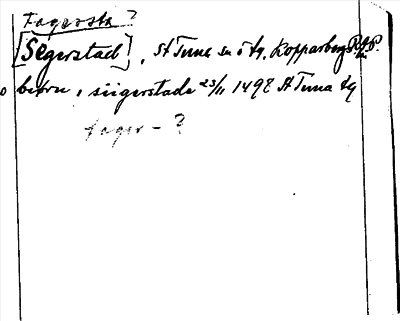 Fagersta?
[Segerstad], St Tuna sn ö tg. Kopparberg
o biørn, siigerstada 23/11 1498 St Tuna tg
fager - ?